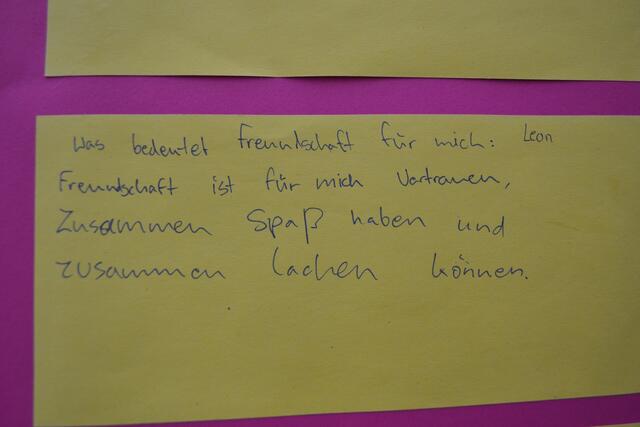 Was bedeutet Freundschaft für mich: Leon
Freundschaft ist für mich Vertrauen,
Zusammen Spaß haben und
zusammen lachen können.